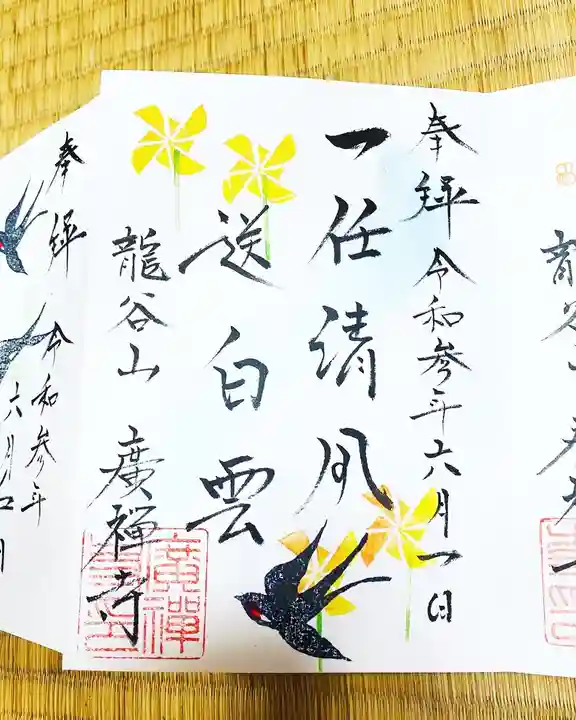 奉拝 令和参年六月一日
一任清風
送白雲
龍谷山 廣禅寺
奉拝 令和参年
六月